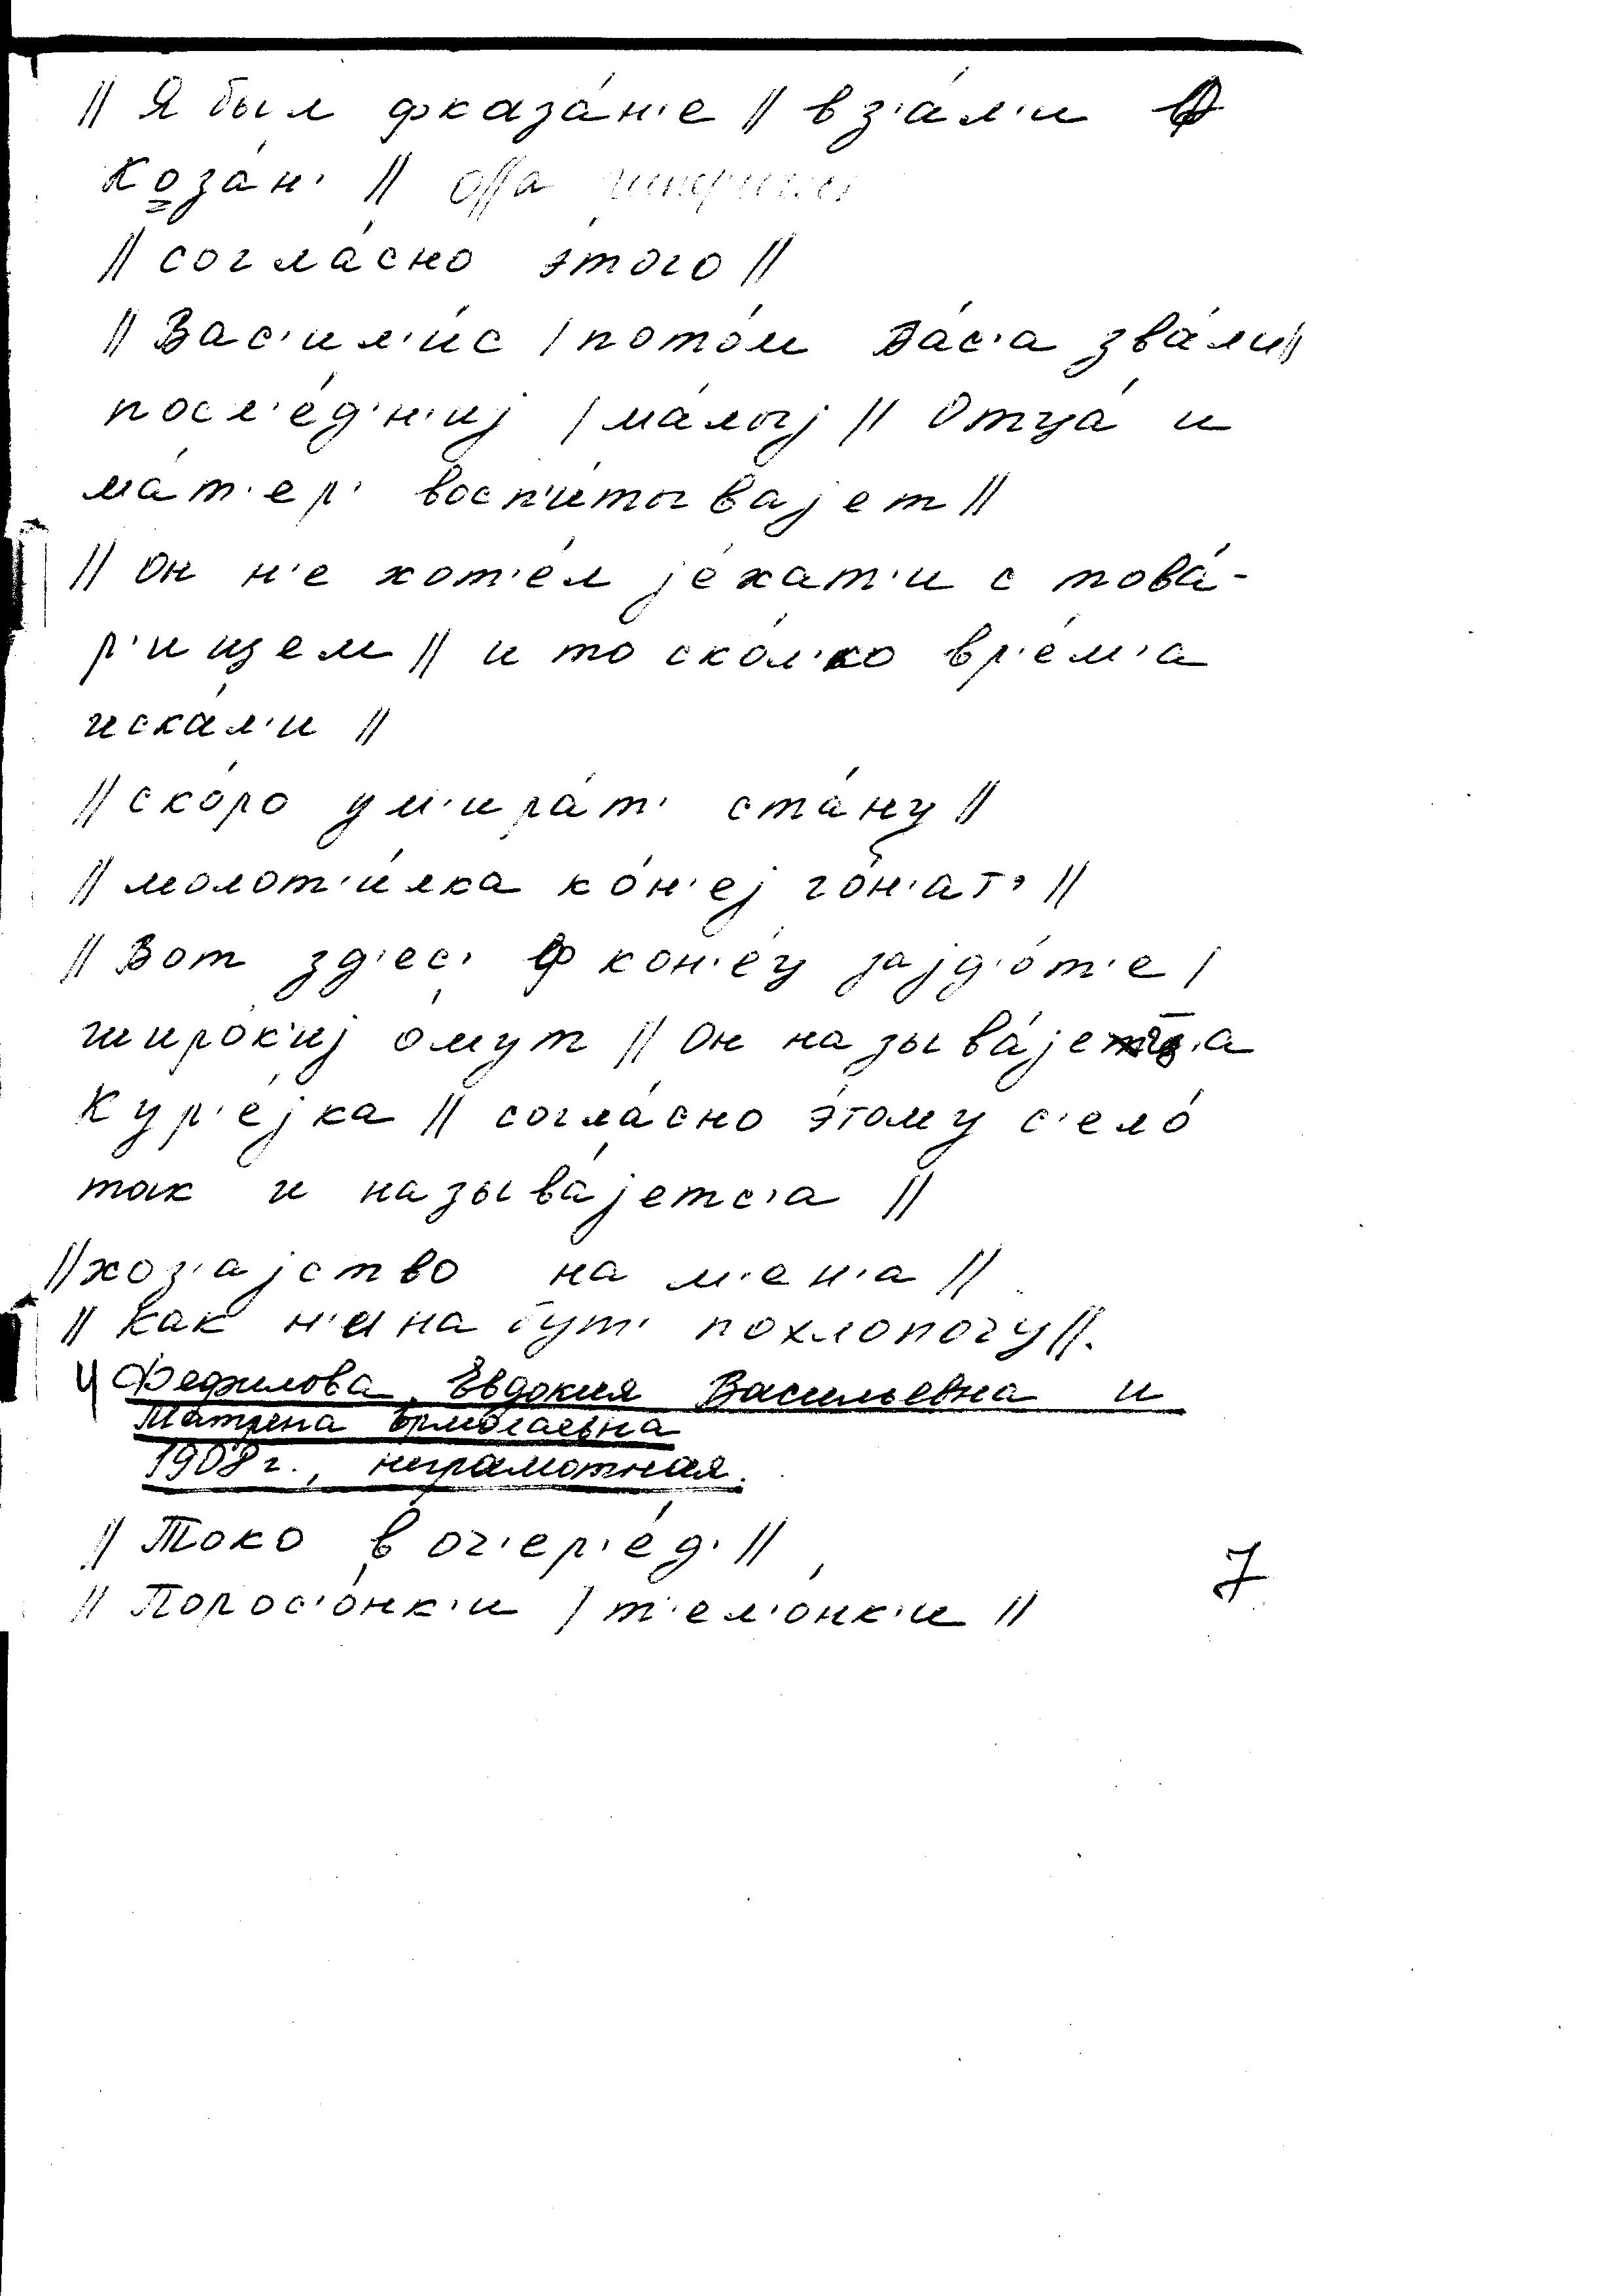 || Я был фказа́н'е || вз'а́л'и ф
Коза́н' ||
|| согла́сно э́того ||
|| Вас'ил'и́с | пото́м Ва́с'а зва́ли ||
посл'е́д'н'иj | ма́лыj || Отца́ и
ма́т'ер' восп'и́тываjет ||
|| Он н'е хот'е́л jе́хат'и с това́-
р'ищем || и то ско́л'ко вр'е́м'а
иска́л'и ||
|| ско́ро ум'ира́т' ста́ну ||
|| молот'и́лка ко́н'еj го́н'ат' ||
|| Вот зд'ес' ф кон'е́ц заjд'о́т'е |
широ́к'иj о́мут || Он называ́jец̄а
Кур'е́jка || согла́сно э́тому с'ело́
так и называ́jетс'а ||
|| хоз'аjство на м'ен'а ||
|| Как н'ина бут' похлопочу ||.
Федилова Евдокия Васильевна и
Матрена Ермолаевна
1908 г., неграмотная.
|| Токо в оч'ер'е́д' ||
|| Порос'о́нк'и | т'ел'о́нк'и ||
7